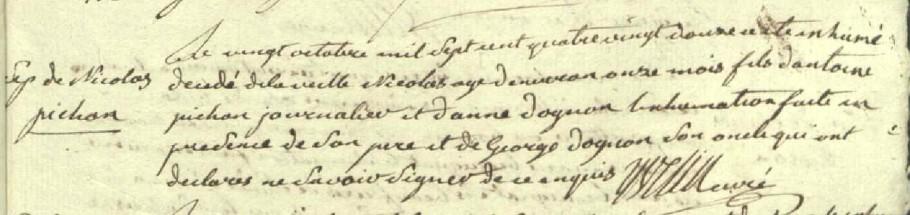 Le vingt octobre mil sept cent quatre vingt douze a ete inhumé
Sep de Nicolas
pichon
decedé dela veille Nicolas age denviron onze mois fils dantoine
pichon journalier et danne dognon Linhumation faite en
presence de son pere et de George dognon son oncle qui ont
declares ne savoir signer de ce enquis
curé